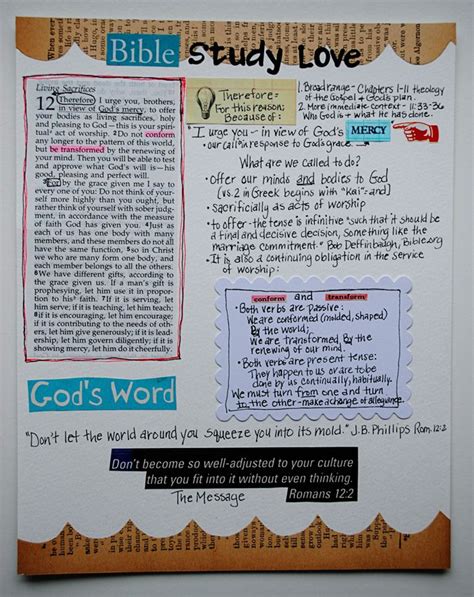 Bible Study Love
Living Sacrifices
12 Therefore, I urge you, brothers,
in view of God's mercy, to offer
your bodies as living sacrifices, holy
and pleasing to God—this is your spirit-
ual act of worship. 2 Do not conform
any longer to the pattern of this world,
but be transformed by the renewing of
your mind. Then you will be able to test
and approve what God's will is—his
good, pleasing and perfect will.
3 For by the grace given me I say to
every one of you: Do not think of your-
self more highly than you ought, but
rather think of yourself with sober judg-
ment, in accordance with the measure
of faith God has given you. 4 Just as
each of us has one body with many
members, and these members do not all
have the same function, 5 so in Christ
we who are many form one body, and
each member belongs to all the others.
6 We have different gifts, according to
the grace given us. If a man's gift is
prophesying, let him use it in propor-
tion to his faith. 7 If it is serving, let
him serve; if it is teaching, let him teach;
8 if it is encouraging, let him encourage;
if it is contributing to the needs of oth-
ers, let him give generously; if it is lead-
ership, let him govern diligently; if it is
showing mercy, let him do it cheerfully.
Therefore=
For this reason;
Because of:
1. Broad range - Chapters 1-11 theology
of the Gospel & God's plan.
2. More immediate context - 11:33-36
Who God is + what He has done.
"I urge you - in view of God's MERCY
• our call in response to God's grace.
What are we called to do?
• Offer our minds and bodies to God
(vs. 2 in Greek begins with "Kai"=and)
• sacrificially as acts of worship
• to offer - the tense is infinitive "such that it should be
a final and decisive decision, something like the
marriage commitment." Bob Deffinbaugh, Bible.org
• It is also a continuing obligation in the service
of worship:
conform and transform
• Both verbs are passive:
We are conformed (molded, shaped)
by the world;
We are transformed by the
renewing of our mind.
• Both verbs are present tense:
They happen to us or are to be
done by us continually, habitually.
We must turn from one and turn
to the other - make a change of allegiance.
God's Word
"Don't let the world around you squeeze you into its mold." J.B. Phillips Rom. 12:2
Don't become so well-adjusted to your culture
that you fit into it without even thinking.
The Message Romans 12:2